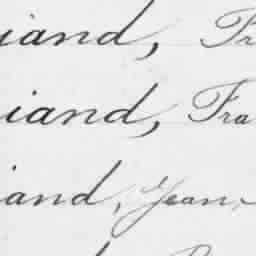 iand, Fr
iand, Fra
iand, Jean